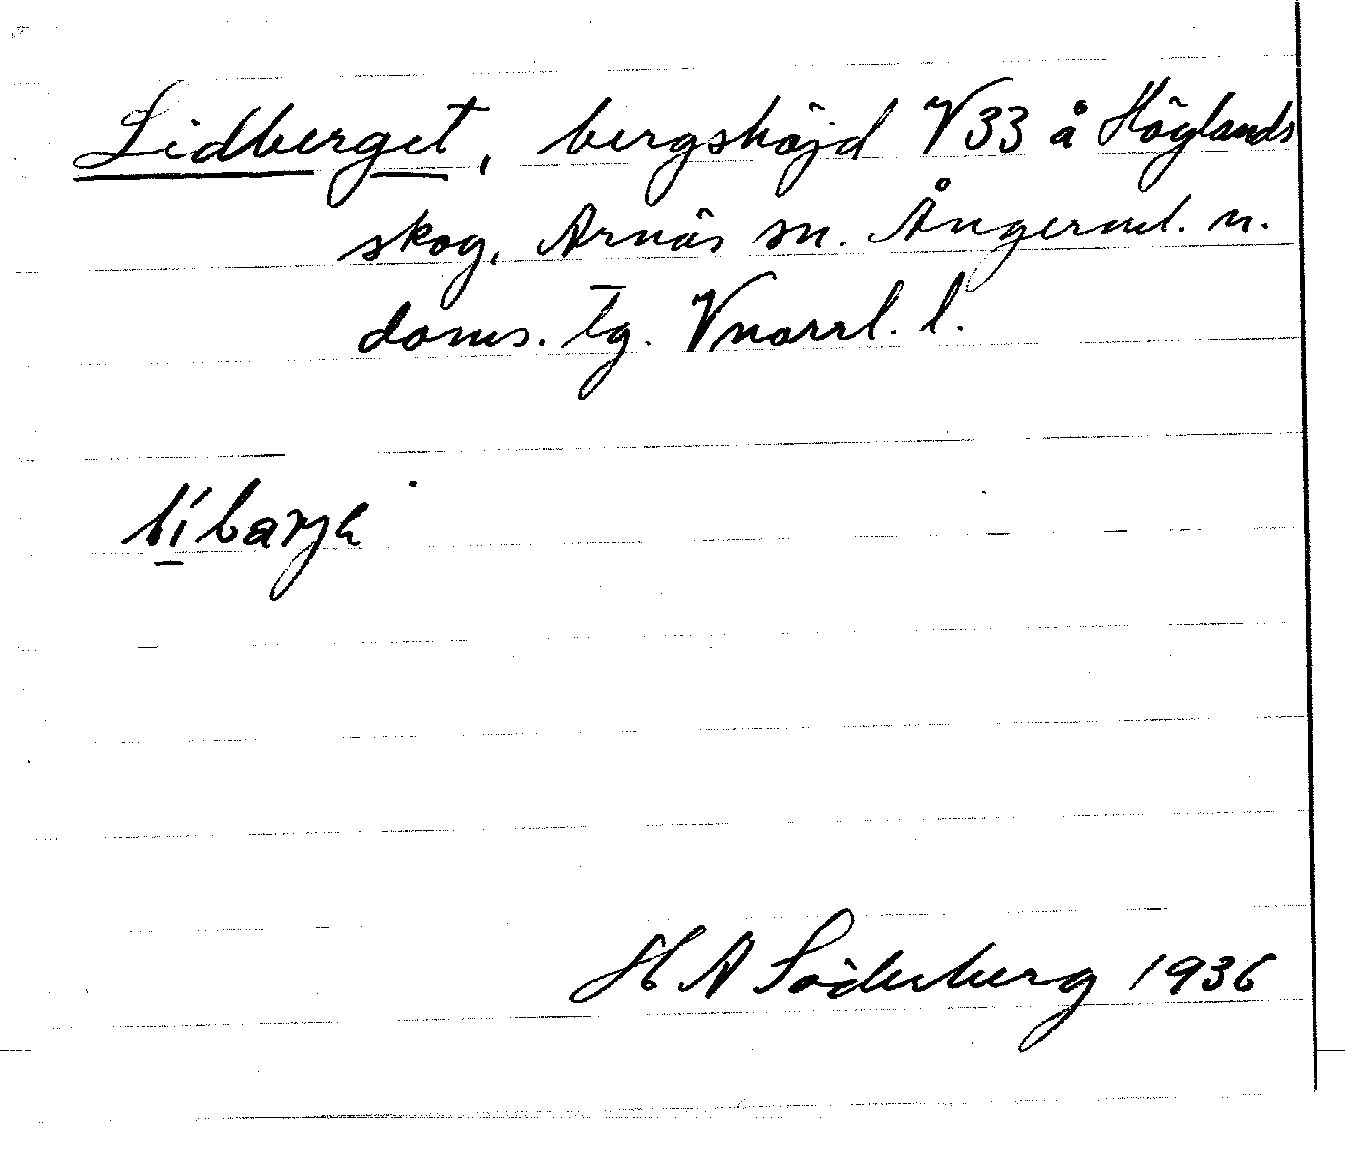 Lidberget, bergshöjd V33 å Höglands
skog, Arnäs sn. Ångerml. n.
doms. tg. Vnorrl. l.
H A Söderberg 1936